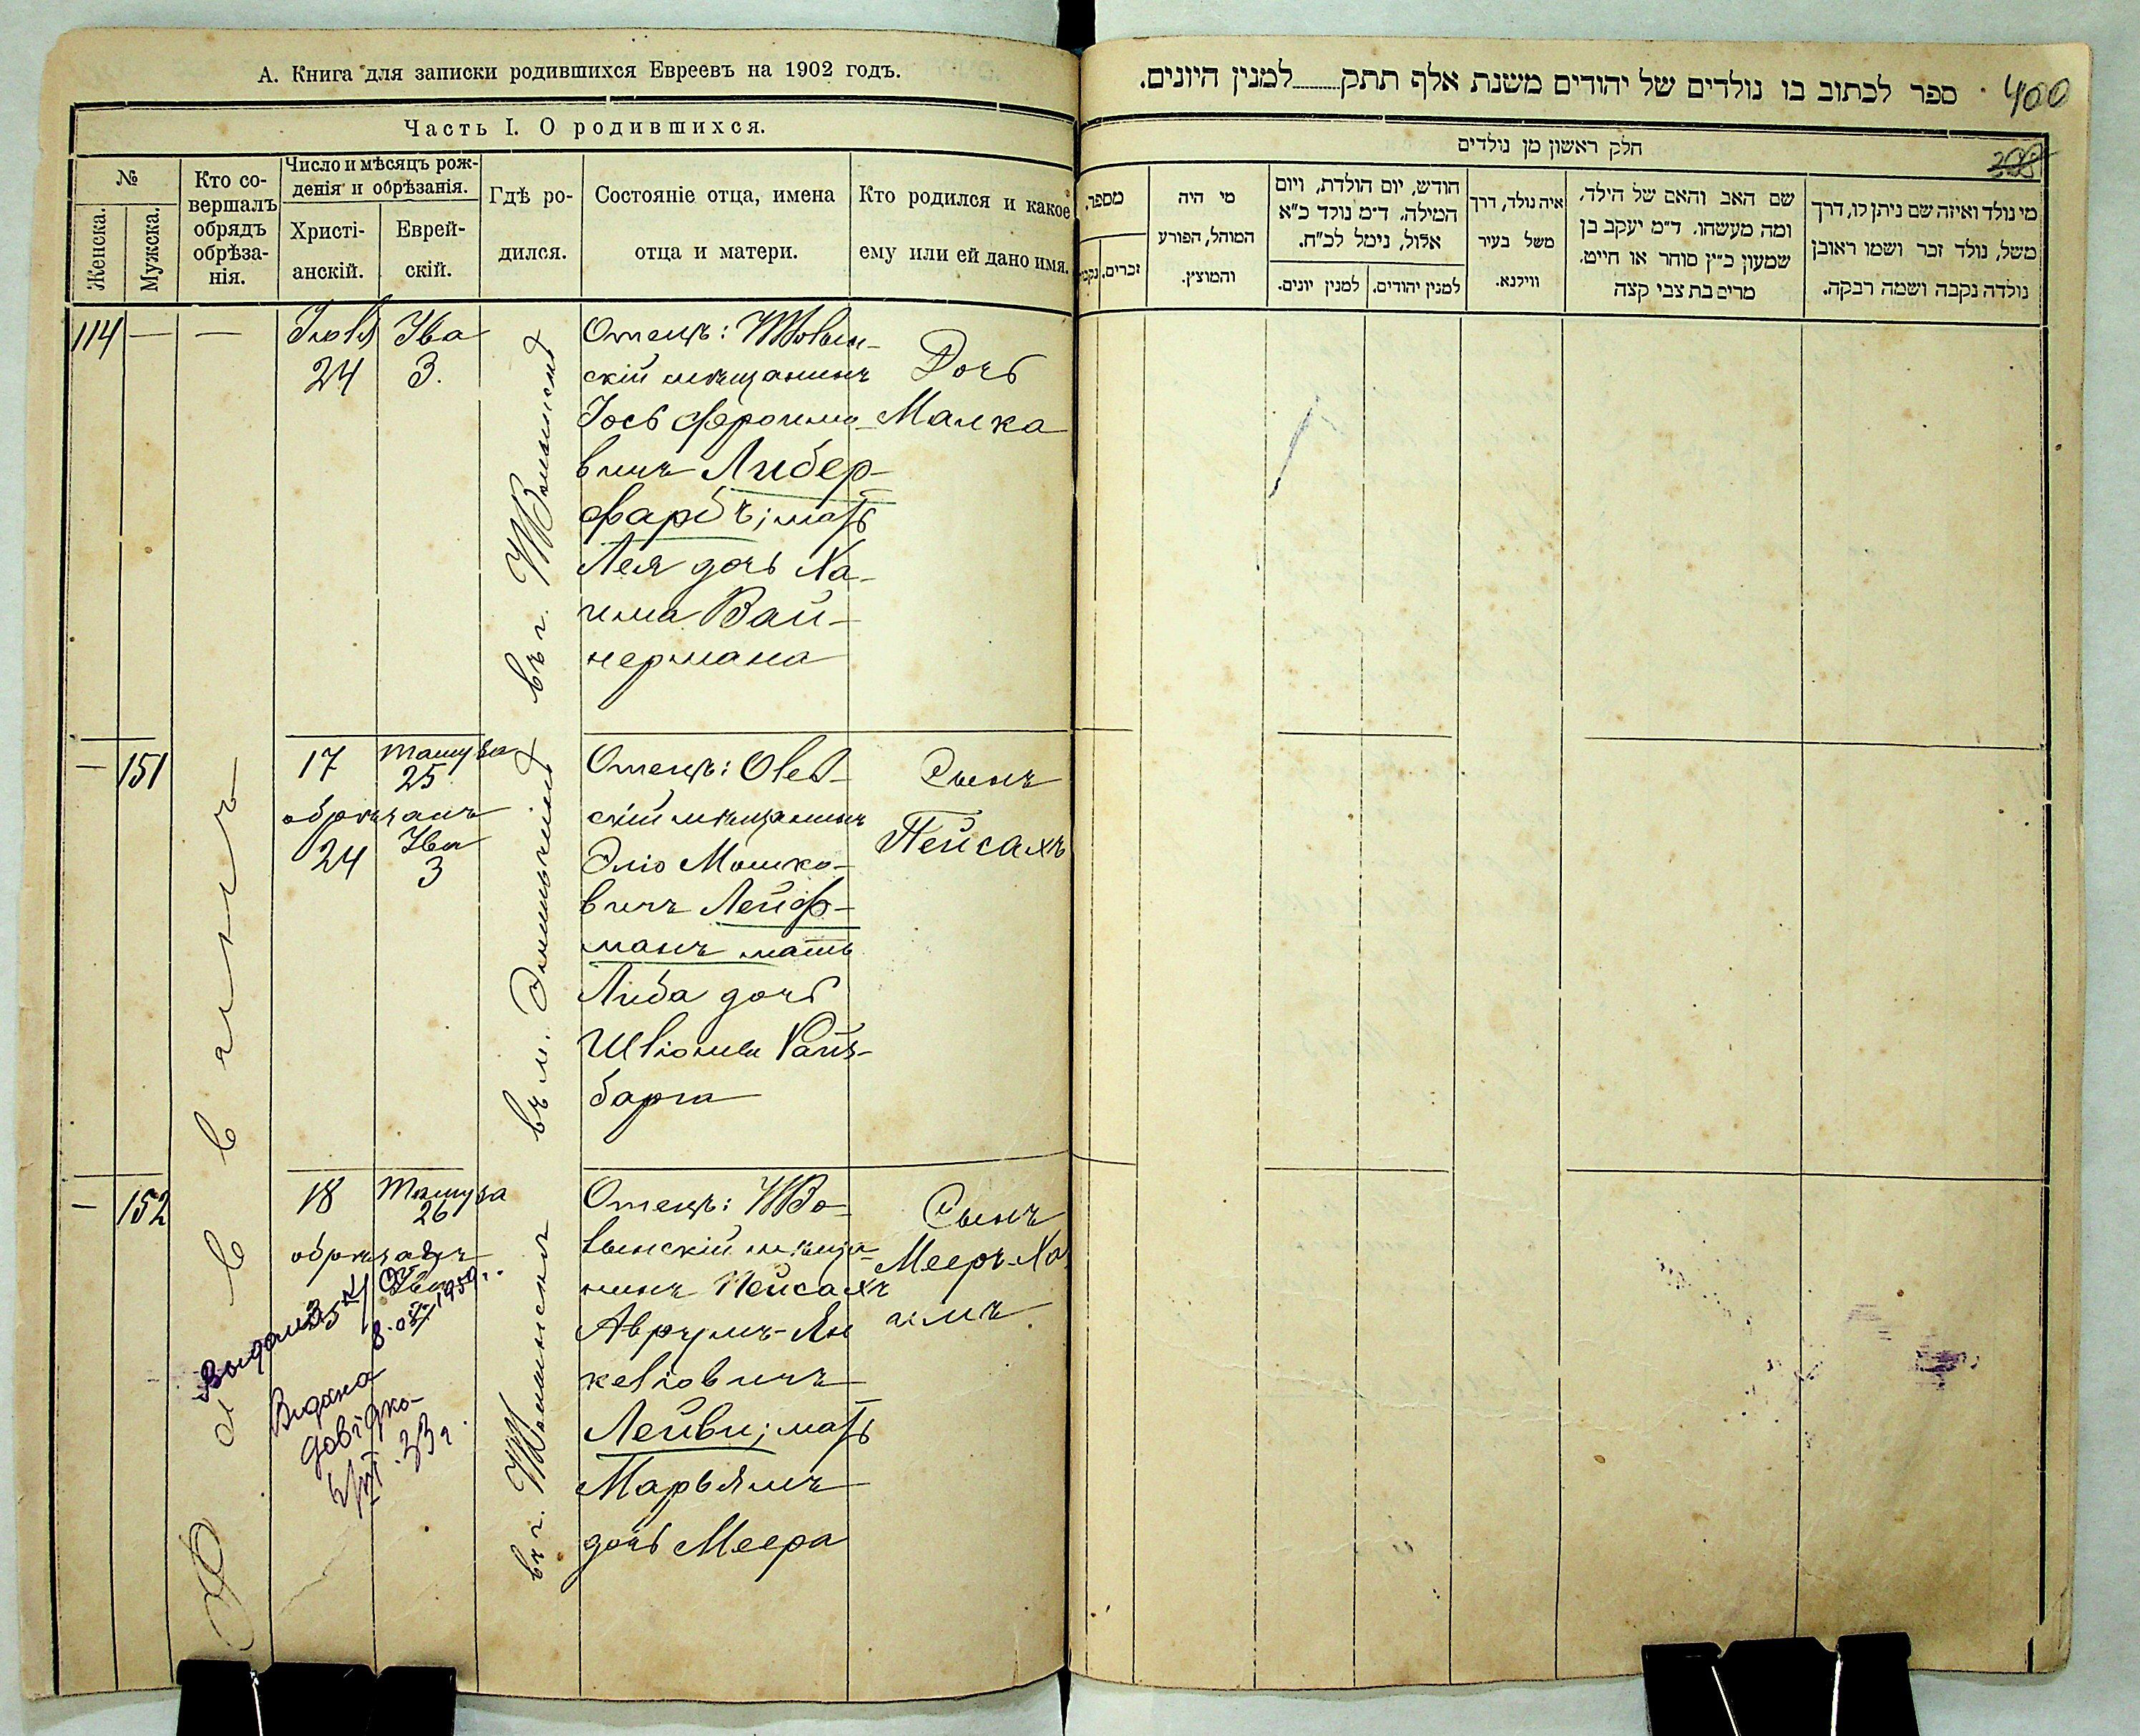 А. Книга для записки родившихся Евреевъ на 1902 годъ.
Часть I. О родившихся.
№
Женска.
Мужска.
Кто со-
вершалъ
обрядъ
обрѣза-
нія.
Число и мѣсяцъ рож-
денія и обрѣзанія.
Христі-
анскій.
Еврей-
скій.
Гдѣ ро-
дился.
Состояніе отца, имена
отца и матери.
Кто родился и какое
ему или ей дано имя.
114 — —
Іюля
24
Ува
3.
въ г.
Отецъ:
скій мѣщанинъ
Іось Фероимо-
вичъ Либер-
фарбъ; мать
Лея дочь Ха-
има Вай-
нермана
Дочь
Малка
— 151
17
Тамуза
25
обрѣзанъ
24
Ува
3
въ м.
Отецъ:
скій мѣщанинъ
Эліо Мошко-
вичъ Лейф-
манъ мать
Либа дочь
Шліомы
барга
Сынъ
Пейсахъ
— 152
18
Тамуза
26
обрѣзанъ
25
Отецъ:
лынскій мѣща-
нинъ Пейсахъ
Аврумъ-Ян
келіовичъ
Лейви; мать
Марьямъ
дочь Меера
Сынъ
Мееръ-Ха
имъ
въ г.
1959 г.
Видана
довідка
33 г.
ספר לכתוב בו נולדים של יהודים משנת אלף תתק למנין היונים.
400
208
חלק ראשון מן נולדים
מספר.
זכרים.
מי היה
המוהל, הפורע
והמוצץ.
חודש, יום הולדת, ויום
המילה. ד״מ נולד כ״א
אלול, נימל לכ״ח.
למנין יונים.
למנין יהודים.
איה נולד, דרך
משל בעיר
ווילנא.
שם האב והאם של הילד,
ומה מעשהו. ד״מ יעקב בן
שמעון כ״ץ סוחר או חייט.
מרים בת צבי קצה
מי נולד ואיזה שם ניתן לו, דרך
משל, נולד זכר ושמו ראובן
נולדה נקבה ושמה רבקה.